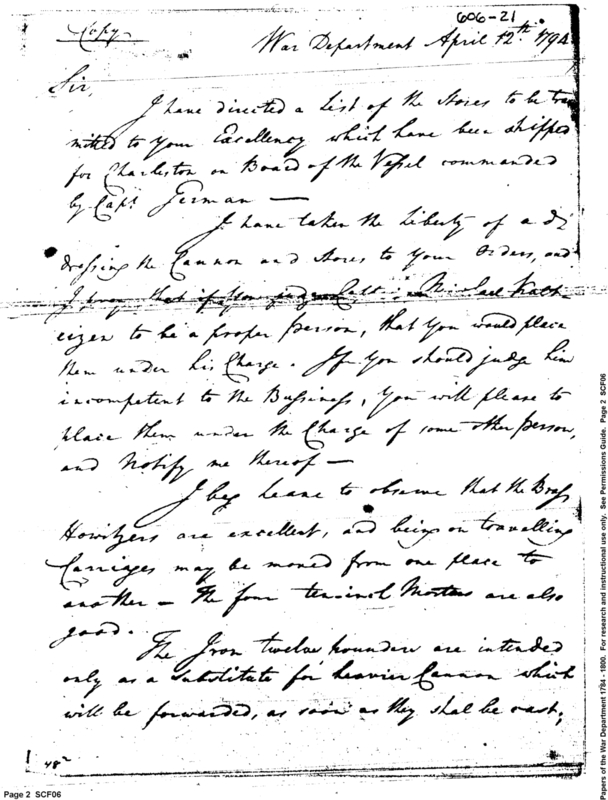 606-21
Copy
War Department April 12th 1794
Sir,
I have directed a List of the Stores to be tran
mitted to your Excellency which have been shipped
for Charleston on Board of the Vessel commanded
by Capt German —
I have taken the Liberty of a d
dressing the Cannon and Stores to your Orders, and
I pray that if you judge Capt Michael Kalt
eizen to be a proper person, that you would place
them under his Charge. If you should judge him
incompetent to the Bussiness, you will please to
place them under the Charge of some other person,
and Notify me thereof —
I beg leave to observe that the Brass
Howitzers are excellent, and being on travelling
Carriages may be moved from one place to
another — The four ten-inch Mortars are also
good.
The Iron twelve pounders are intended
only as a substitute for heavier Cannon which
will be forwarded, as soon as they shal be cast;
48
Page 2 SCF06
Papers of the War Department 1784 - 1800. For research and instructional use only. See Permissions Guide. Page 2 SCF06